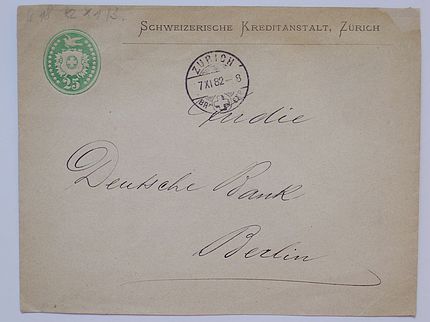 SCHWEIZERISCHE KREDITANSTALT, ZÜRICH
25
ZÜRICH
7 XI 82 - 8
An die
Deutsche Bank
Berlin